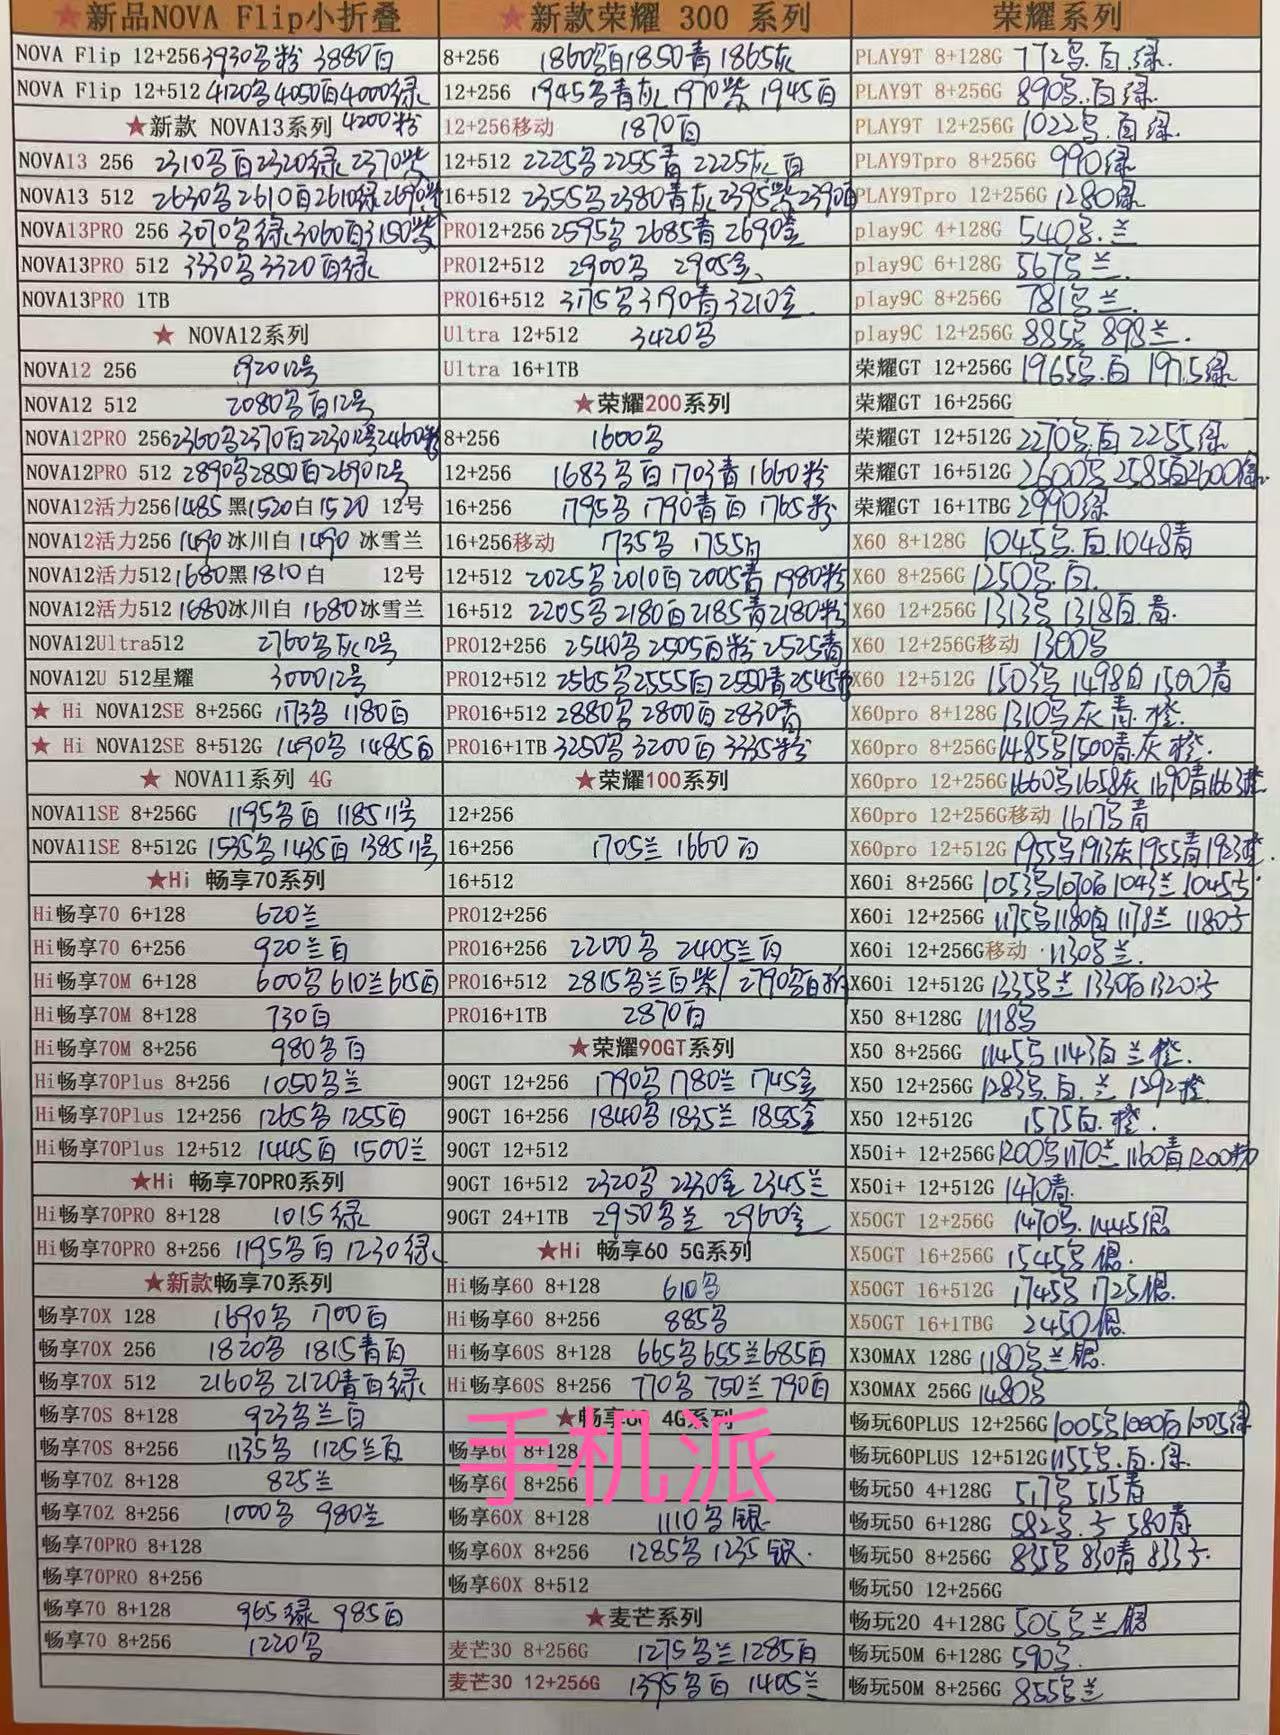 ★新品NOVA Flip小折叠
NOVA Flip 12+256 3930黑粉 3880白
NOVA Flip 12+512 4120黑4050白4000绿
★新款 NOVA13系列 4200粉
NOVA13 256 2310黑白2320绿2370紫
NOVA13 512 2630黑2610白2610绿2690紫
NOVA13PRO 256 3070黑绿3060白3150紫
NOVA13PRO 512 3330黑3320白绿
NOVA13PRO 1TB
★ NOVA12系列
NOVA12 256 1920 12号
NOVA12 512 2080黑白12号
NOVA12PRO 256 2360黑2370白2230 12号2460粉
NOVA12PRO 512 2890黑2850白2690 12号
NOVA12活力256 1485 黑1520白1520 12号
NOVA12活力256 1490 冰川白 1490 冰雪兰
NOVA12活力512 1680黑1810白 12号
NOVA12活力512 1680冰川白 1680冰雪兰
NOVA12Ultra512 2760黑灰12号
NOVA12U 512星耀 3000 12号
★ Hi NOVA12SE 8+256G 1173黑 1180白
★ Hi NOVA12SE 8+512G 1490黑 1485白
★ NOVA11系列 4G
NOVA11SE 8+256G 1195黑白 1185 11号
NOVA11SE 8+512G 1535黑1435白1385 11号
★Hi 畅享70系列
Hi畅享70 6+128 620兰
Hi畅享70 6+256 920兰白
Hi畅享70M 6+128 600黑610兰615白
Hi畅享70M 8+128 730白
Hi畅享70M 8+256 980黑白
Hi畅享70Plus 8+256 1050黑兰
Hi畅享70Plus 12+256 1265黑 1255白
Hi畅享70Plus 12+512 1445白 1500兰
★Hi 畅享70PRO系列
Hi畅享70PRO 8+128 1015绿
Hi畅享70PRO 8+256 1195黑白 1230绿
★新款畅享70系列
畅享70X 128 1690黑 1700白
畅享70X 256 1820黑 1815青白
畅享70X 512 2160黑 2120青白绿
畅享70S 8+128 923黑兰白
畅享70S 8+256 1135黑 1125兰白
畅享70Z 8+128 825兰
畅享70Z 8+256 1000黑 980兰
畅享70PRO 8+128
畅享70PRO 8+256
畅享70 8+128 965绿 985白
畅享70 8+256 1220黑
★新款荣耀 300 系列
8+256 1860黑白1850青1865灰
12+256 1945黑青灰1970紫 1945白
12+256移动 1870白
12+512 2225黑2255青2225灰白
16+512 2355黑2380青灰2395紫2390白
PRO12+256 2595黑 2685青 2690金
PRO12+512 2900黑 2905金
PRO16+512 3175黑3190青3210金
Ultra 12+512 3420黑
Ultra 16+1TB
★荣耀200系列
8+256 1600黑
12+256 1683黑白1703青1660粉
16+256 1795黑 1790青白 1765粉
16+256移动 1735黑 1755白
12+512 2025黑2010白2005青1980粉
16+512 2205黑2180白2185青2180粉
PRO12+256 2540黑2505白粉2525青
PRO12+512 2565黑2555白2550青2545粉
PRO16+512 2880黑2800白2830青
PRO16+1TB 3250黑3200白3335粉
★荣耀100系列
12+256
16+256 1705兰 1660白
16+512
PRO12+256
PRO16+256 2200黑 2405兰白
PRO16+512 2815黑兰白紫/2790黑白粉
PRO16+1TB 2870白
★荣耀90GT系列
90GT 12+256 1790黑1780兰 1745金
90GT 16+256 1840黑1835兰 1855金
90GT 12+512
90GT 16+512 2320黑 2330金 2345兰
90GT 24+1TB 2950黑兰 2960金
★Hi 畅享60 5G系列
Hi畅享60 8+128 610黑
Hi畅享60 8+256 885黑
Hi畅享60S 8+128 665黑655兰685白
Hi畅享60S 8+256 770黑750兰790白
★畅享60 4G系列
手机派
畅享60 8+128
畅享60 8+256
畅享60X 8+128 1110黑银
畅享60X 8+256 1285黑1235银
畅享60X 8+512
★麦芒系列
麦芒30 8+256G 1275黑兰1285白
麦芒30 12+256G 1395黑白 1405兰
荣耀系列
PLAY9T 8+128G 772黑.白.绿.
PLAY9T 8+256G 890黑.白绿
PLAY9T 12+256G 1022黑.白绿.
PLAY9Tpro 8+256G 990绿
PLAY9Tpro 12+256G 1280绿
play9C 4+128G 540黑.兰
play9C 6+128G 567黑兰.
play9C 8+256G 781黑兰
play9C 12+256G 885黑 898兰.
荣耀GT 12+256G 1965黑.白 1975绿
荣耀GT 16+256G
荣耀GT 12+512G 2270黑.白 2255绿
荣耀GT 16+512G 2600黑2585白2600绿
荣耀GT 16+1TBG 2990绿
X60 8+128G 1045黑.白1048青
X60 8+256G 1250黑.白.
X60 12+256G 1313黑1318白青.
X60 12+256G移动 1300黑
X60 12+512G 1503黑1498白1500青
X60pro 8+128G 1310黑灰青.橙.
X60pro 8+256G 1485黑1500青.灰橙.
X60pro 12+256G 1660黑1658灰1690青1663橙
X60pro 12+256G移动 1617青
X60pro 12+512G 1955黑1913灰1955青1923橙.
X60i 8+256G 1053黑1070白1043兰1045
X60i 12+256G 1175黑1180白1178兰 1180
X60i 12+256G移动 1130黑兰.
X60i 12+512G 1335黑兰 1330白1320
X50 8+128G 1118黑
X50 8+256G 1145黑1143白兰橙.
X50 12+256G 1283黑.白.兰 1292橙.
X50 12+512G 1575白.橙.
X50i+ 12+256G 1200黑1170兰1160青1200粉
X50i+ 12+512G 1470青.
X50GT 12+256G 1470黑.1445银
X50GT 16+256G 1545黑银.
X50GT 16+512G 1745黑 1725银.
X50GT 16+1TBG 2450银.
X30MAX 128G 1180黑兰银.
X30MAX 256G 1480黑
畅玩60PLUS 12+256G 1005黑1000白1005绿
畅玩60PLUS 12+512G 1155黑.白.绿.
畅玩50 4+128G 517黑 515青
畅玩50 6+128G 582黑. 580青.
畅玩50 8+256G 835黑830青833
畅玩50 12+256G
畅玩20 4+128G 505黑兰银
畅玩50M 6+128G 590黑.
畅玩50M 8+256G 855黑兰